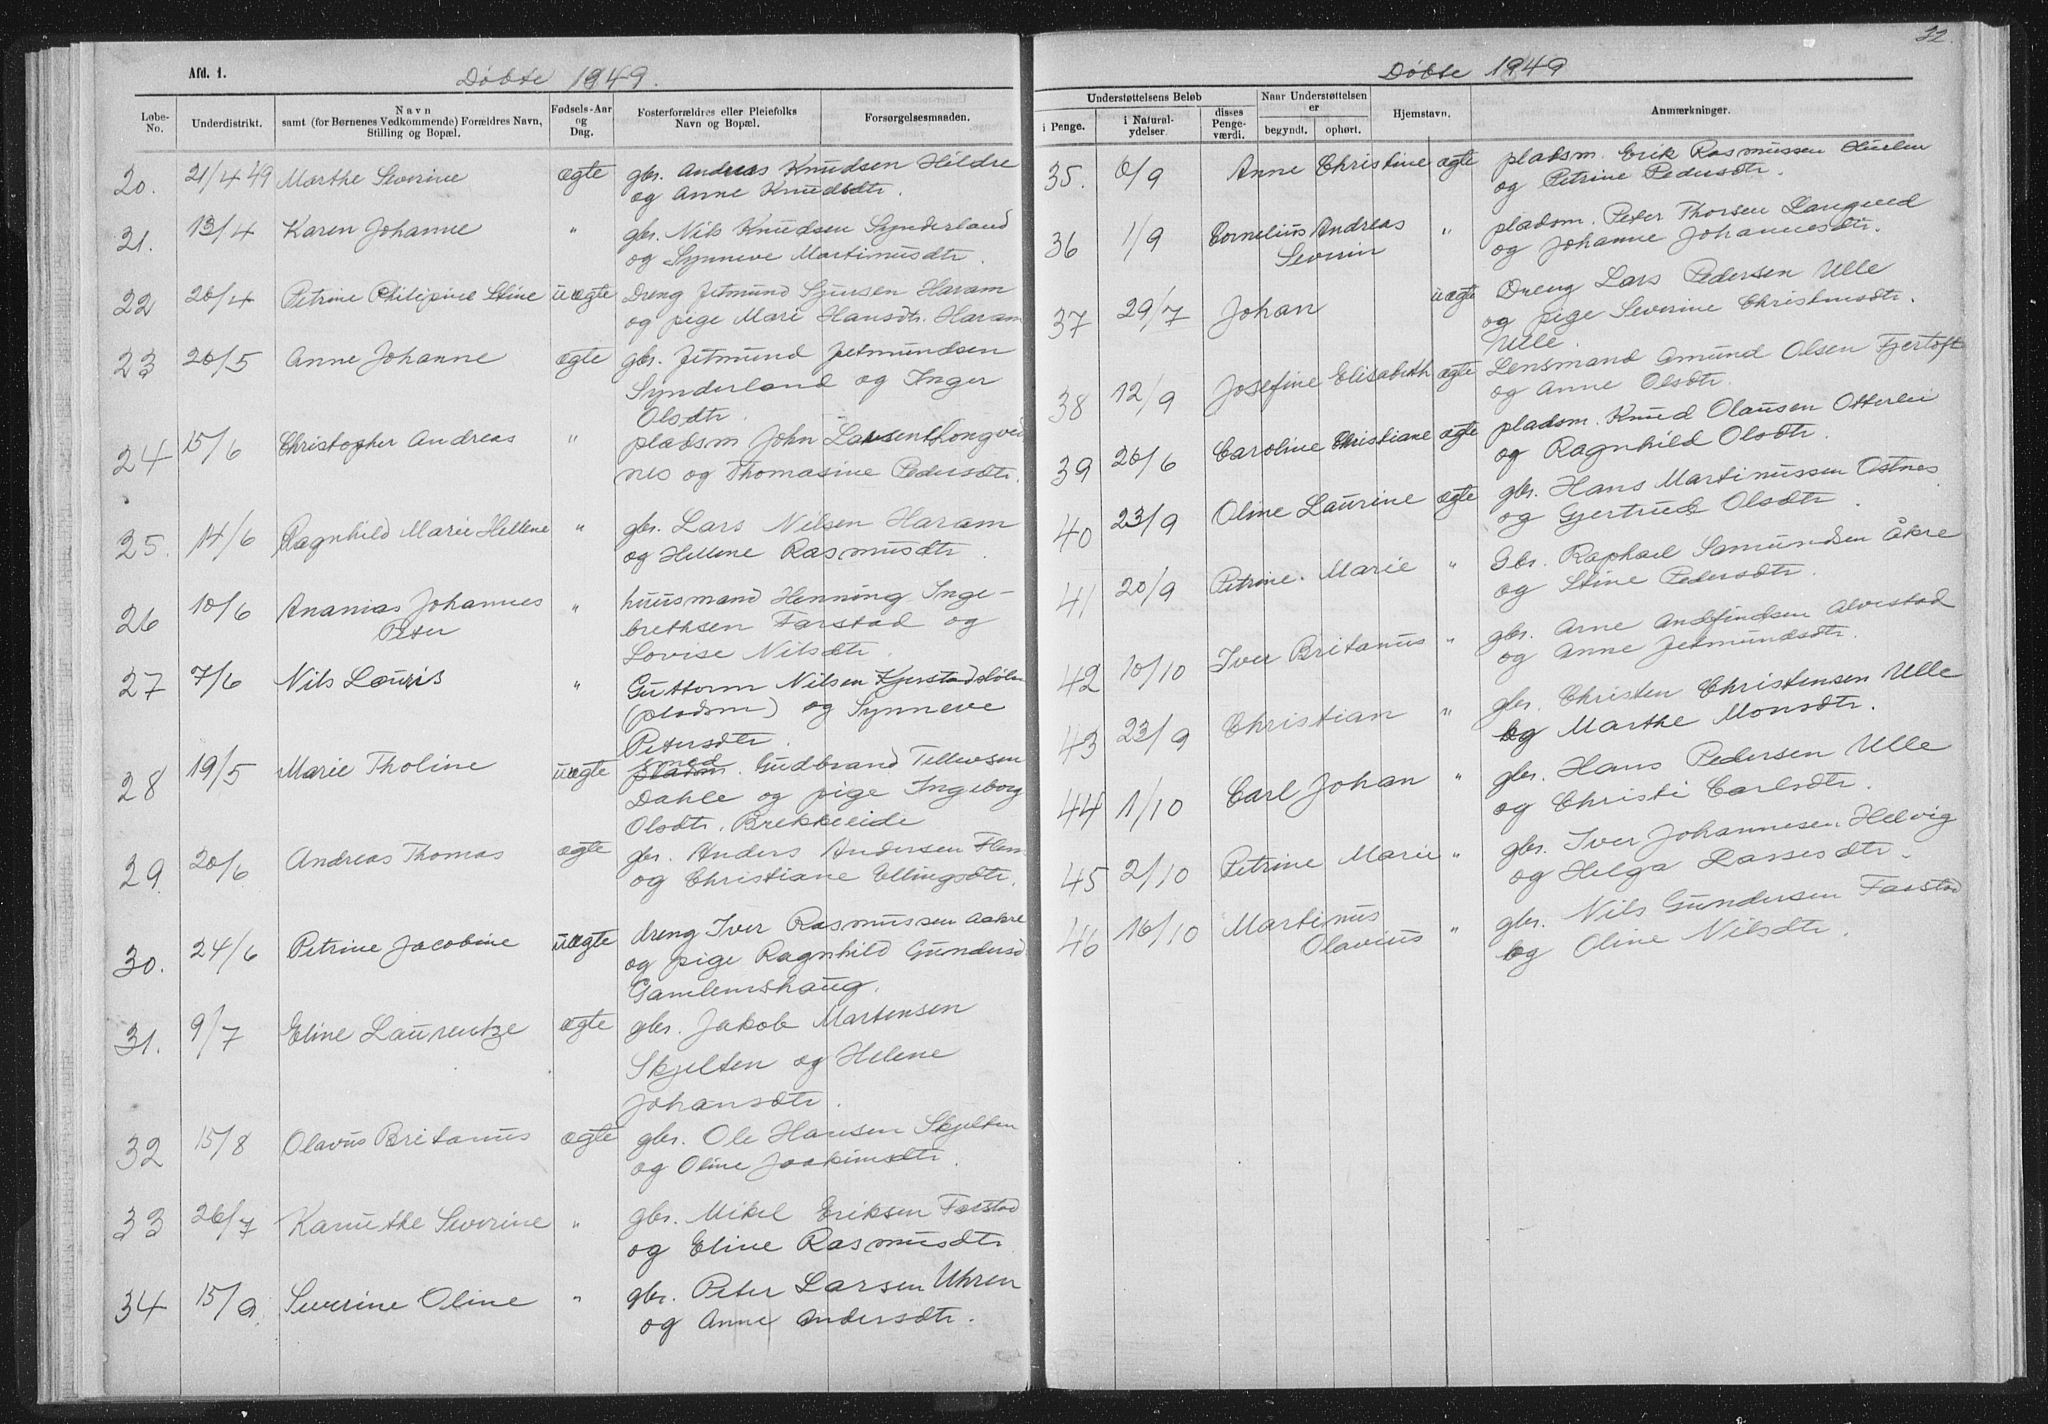 Afd. 1.
Døbte 1949.
Løbe-No.
Underdistrikt.
Navn
samt (for Børnenes Vedkommende) Forældres Navn,
Stilling og Bopæl.
Fødsels-Aar
og
Dag.
Fosterforældres eller Pleiefolks
Navn og Bopæl.
Forsørgelsesmaaden.
20. 21/4 49 Marthe Severine ægte gbr. Andreas Knudsen Hildre
og Anne Knudsdtr.
21. 13/4 Karen Johanne " gbr. Nils Knudsen Synderland
og Synneve Martinusdtr.
22 26/4 Petrine Philipine Stine uægte Dreng Jetmund Sjursen Haram
og pige Mari Hansdtr. Haram
23 26/5 Anne Johanne ægte gbr. Jetmund Jetmundsen
Synderland og Inger
Olsdtr.
24 15/6 Christopher Andreas " pladsm John Larsen Longvid
nes og Thomasine Pedersdtr.
25. 14/6 Ragnhild Marie Hellene " gbr. Lars Nilsen Haram
og Hellene Rasmusdtr.
26 10/6 Ananias Johannes " huusmand Henning Inge-
Peter brethsen Farstad og
Lovise Nilsdtr.
27 7/6 Nils Louris " Guttorm Nilsen Kjerstadsløln
(pladsm) og Synneve
Petersdtr.
28 19/5 Marie Tholine uægte smed pladsm. Gudbrand Tellevsen
Dahle og pige Ingeborg
Olsdtr. Brekkeeide
29. 20/6 Andreas Thomas ægte gbr. Anders Andersen Flem
og Christiane Ellingsdtr.
30. 24/6 Petrine Jacobine uægte dreng Iver Rasmussen Aakre
og pige Ragnhild Gundersd
Gamlemshaug.
31. 9/7 Eline Laurentze ægte gbr. Jakob Martensen
Skjelten og Helene
Johansdtr.
32 15/8 Olavus Britanus ægte gbr. Ole Hansen Skjelten
og Oline Joakimsdtr.
33 26/7 Kanuthe Severine " gbr. Mikel Eriksen Farstad
og Eline Rasmusdtr.
34 15/9 Severine Oline " gbr. Peter Larsen Uhren
og Anne Andersdtr.
22.
Døbte 1949
Understøttelsens Beløb
i Penge.
i Natural-
ydelser.
disses
Penge-
værdi.
Naar Understøttelsen
er
begyndt.
ophørt.
Hjemstavn.
Anmærkninger.
35. 6/9 Anne Christine ægte pladsm. Erik Rasmussen Huslen
og Petrine Pedersdtr.
36 1/9 Cornelius Andreas " pladsm. Peter Thorsen Langved
Severin og Johanne Johannesdtr.
37 29/7 Johan uægte Dreng Lars Pedersen Ulle
og pige Severine Christensdtr.
Ulle.
38 12/9 Josefine Elisabeth ægte Lensmand Amund Olsen Fjertoft
og Anne Olsdtr.
39 26/6 Caroline Christiane ægte pladsm. Knud Olausen Otterlei
og Ragnhild Olsdtr.
40 23/9 Oline Laurine ægte gbr. Hans Martinussen Østnes
og Gjertrud Olsdtr.
41 20/9 Petrine Marie " Gbr. Raphael Samundsen Åkre
og Stine Pedersdtr.
42 10/10 Iver Britanus " gbr. Arne Andfindsen Alvestad
og Anne Jetmundsdtr.
43 23/9 Christian " gbr. Christen Christensen Ulle
og Marthe Monsdtr.
44 1/10 Carl Johan " gbr. Hans Pedersen Ulle
og Christi Carlsdtr.
45 2/10 Petrine Marie " gbr. Iver Johannesen Helvig
og Helga Lassesdtr.
46 16/10 Martinus gbr. Nils Gundersen Farstad
Olavius " og Oline Nilsdtr.